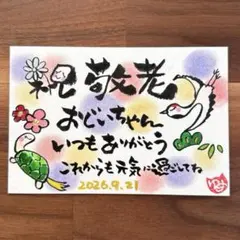 祝敬老
おじいちゃん
いつもありがとう
これからも元気に過ごしてね
2026.9.21